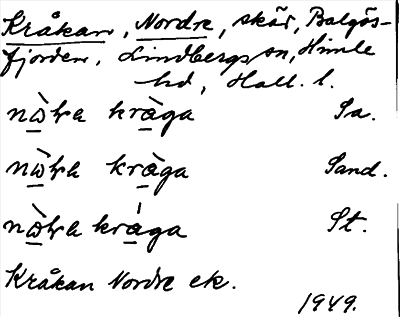 Kråkan, Nordre, skär, Balgös-
fjorden, Lindbergs sn, Himle
hd, Hall. l.
kràga Sa.
kràga Sand.
kràga St.
Kråkan Nordre ek.
1949.